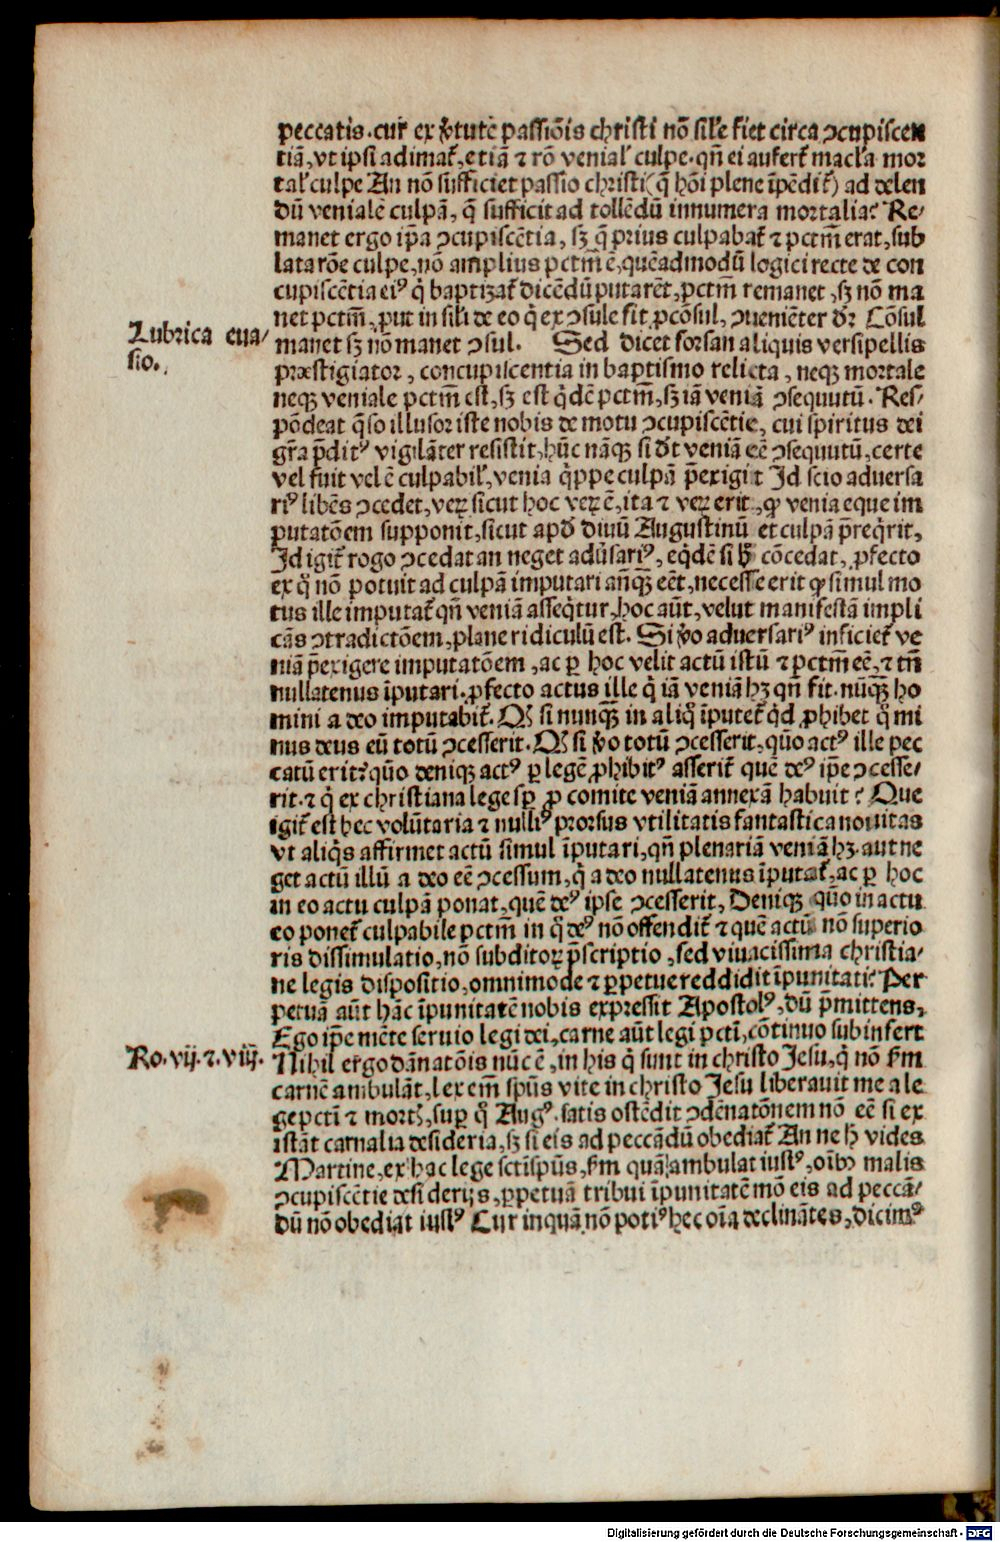 peccatis. cur̃ ex v̓tutē passiōis christi nō sil'e fiet circa ↄcupiscen
tiā, vt ipsi adimat᷑, etiā ⁊ rō venial' culpe. qñ ei aufert᷑ macl'a mor
tal' culpe An nō sufficiet passio christi (q̄ hōi plene īpēdit᷑) ad delen
dū venialē culpā, q̄ sufficit ad tollēdū innumera mortalia? Re⸗
manet ergo ip̄a ↄcupiscētia, sꝫ q̄ prius culpabat᷑ ⁊ pctm̄ erat, sub
lata rōe culpe, nō amplius pctm̄ ē, quēadmodū logici recte de con
cupiscētia eiꝰ q̇ baptizat᷑ dicēdū putarēt, pctm̄ remanet, sꝫ nō ma
net pctm̄, ꝓut in sili de eo q̇ ex ↄsule fit ꝓcōsul, ↄueniēter dr̄: Cōsul
Lubrica eua⸗
sio.
manet sꝫ nō manet ↄsul. Sed dicet forsan aliquis versipellis
præstigiator, concupiscentia in baptismo relicta, neqꝫ mortale
neqꝫ veniale pctm̄ est, sꝫ est q̇dē pctm̄, sꝫ iā veniā ↄsequutū. Res⸗
pōdeat q̄so illusor iste nobis de motu ↄcupiscētie, cui spiritus dei
gr̄a p̄ditꝰ vigilāter resistit, hūc nāqꝫ si dr̄t veniā eē ↄsequutū, certe
vel fuit vel ē culpabil', venia q̇ppe culpā p̄exigit Id scio aduersa
riꝰ libēs ↄcedet, veꝝ sicut hoc veꝝ ē, ita ⁊ veꝝ erit, ꝙ venia eque im
putatōem supponit, sicut apd̓ diuū Augustinū et culpā p̄req̇rit,
Id igit᷑ rogo ↄcedat an neget adūsariꝰ, eq̇dē si h̓ cōcedat, ꝓfecto
ex q̊ nō potuit ad culpā imputari añqꝫ eēt, necesse erit ꝙ simul mo
tus ille imputat᷑ qñ veniā asseq̇tur, hoc aūt, velut manifestā impli
cās ↄtradictōem, plane ridiculū est. Si v̓o aduersariꝰ inficiet᷑ ve
niā p̄exigere imputatōem, ac ꝑ hoc velit actū istū ⁊ pctm̄ eē, ⁊ tm̄
nullatenus īputari. ꝓfecto actus ille q̇ iā veniā hꝫ qñ fit. nūqꝫ ho
mini a deo imputabit᷑. Qꝫ si nunqꝫ in aliq̊ īputet᷑ q̇d ꝓhibet q̊ mi
nus deus eū totū ↄcesserit. Qꝫ si v̓o totū ↄcesserit, quō actꝰ ille pec
catū erit? quō deniqꝫ actꝰ ꝑ legē ꝓhibitꝰ asserit᷑ quē deꝰ ip̄e ↄcesse⸗
rit. ⁊ q̇ ex christiana lege sꝑ ꝓ comite veniā annexā habuit? Que
igit᷑ est hec volūtaria ⁊ nulliꝰ prorsus vtilitatis fantastica nouitas
vt aliq̇s affirmet actū simul īputari, qñ plenariā veniā hꝫ. aut ne
get actū illū a deo eē ↄcessum, q̇ a deo nullatenus īputat᷑, ac ꝑ hoc
in eo actu culpā ponat, quē deꝰ ipse ↄcesserit, Deniqꝫ quō in actu
eo ponet᷑ culpabile pctm̄ in q̊ deꝰ nō offendit᷑ ⁊ quē actū nō superio
ris dissimulatio, nō subditoꝝ p̄scriptio, sed viuacissima christia⸗
ne legis dispositio, omnimode ⁊ ꝑpetue reddidit īpunitati? Per
petuā aūt hāc īpunitatē nobis expressit Apostolꝰ, dū p̄mittens,
Ego ip̄e mēte seruio legi dei, carne aūt legi pcti, cōtinuo subinfert
Ro. vij. ⁊. viij.
Nihil ergo dānatōis nūc ē, in his q̇ sunt in christo Iesu, q̇ nō ẜm
carnē ambulāt, lex em̄ spūs vite in christo Iesu liberauit me a le
ge pcti ⁊ mortꝭ, suꝑ q̊ Augꝰ. satis ostēdit ↄdēnatōnem nō eē si ex
istāt carnalia desideria, sꝫ si eis ad peccādū obediat᷑ An ne h̓ vides
Martine, ex hac lege sctispūs, ẜm quā ambulat iustꝰ, oībꝰ malis
ↄcupiscētie desiderijs, ꝑpetuā tribui īpunitatē mō eis ad peccā⸗
dū nō obediat iustꝰ Cur inquā nō potiꝰ hec oīa declinātes, dicimꝰ
Digitalisierung gefördert durch die Deutsche Forschungsgemeinschaft - DFG